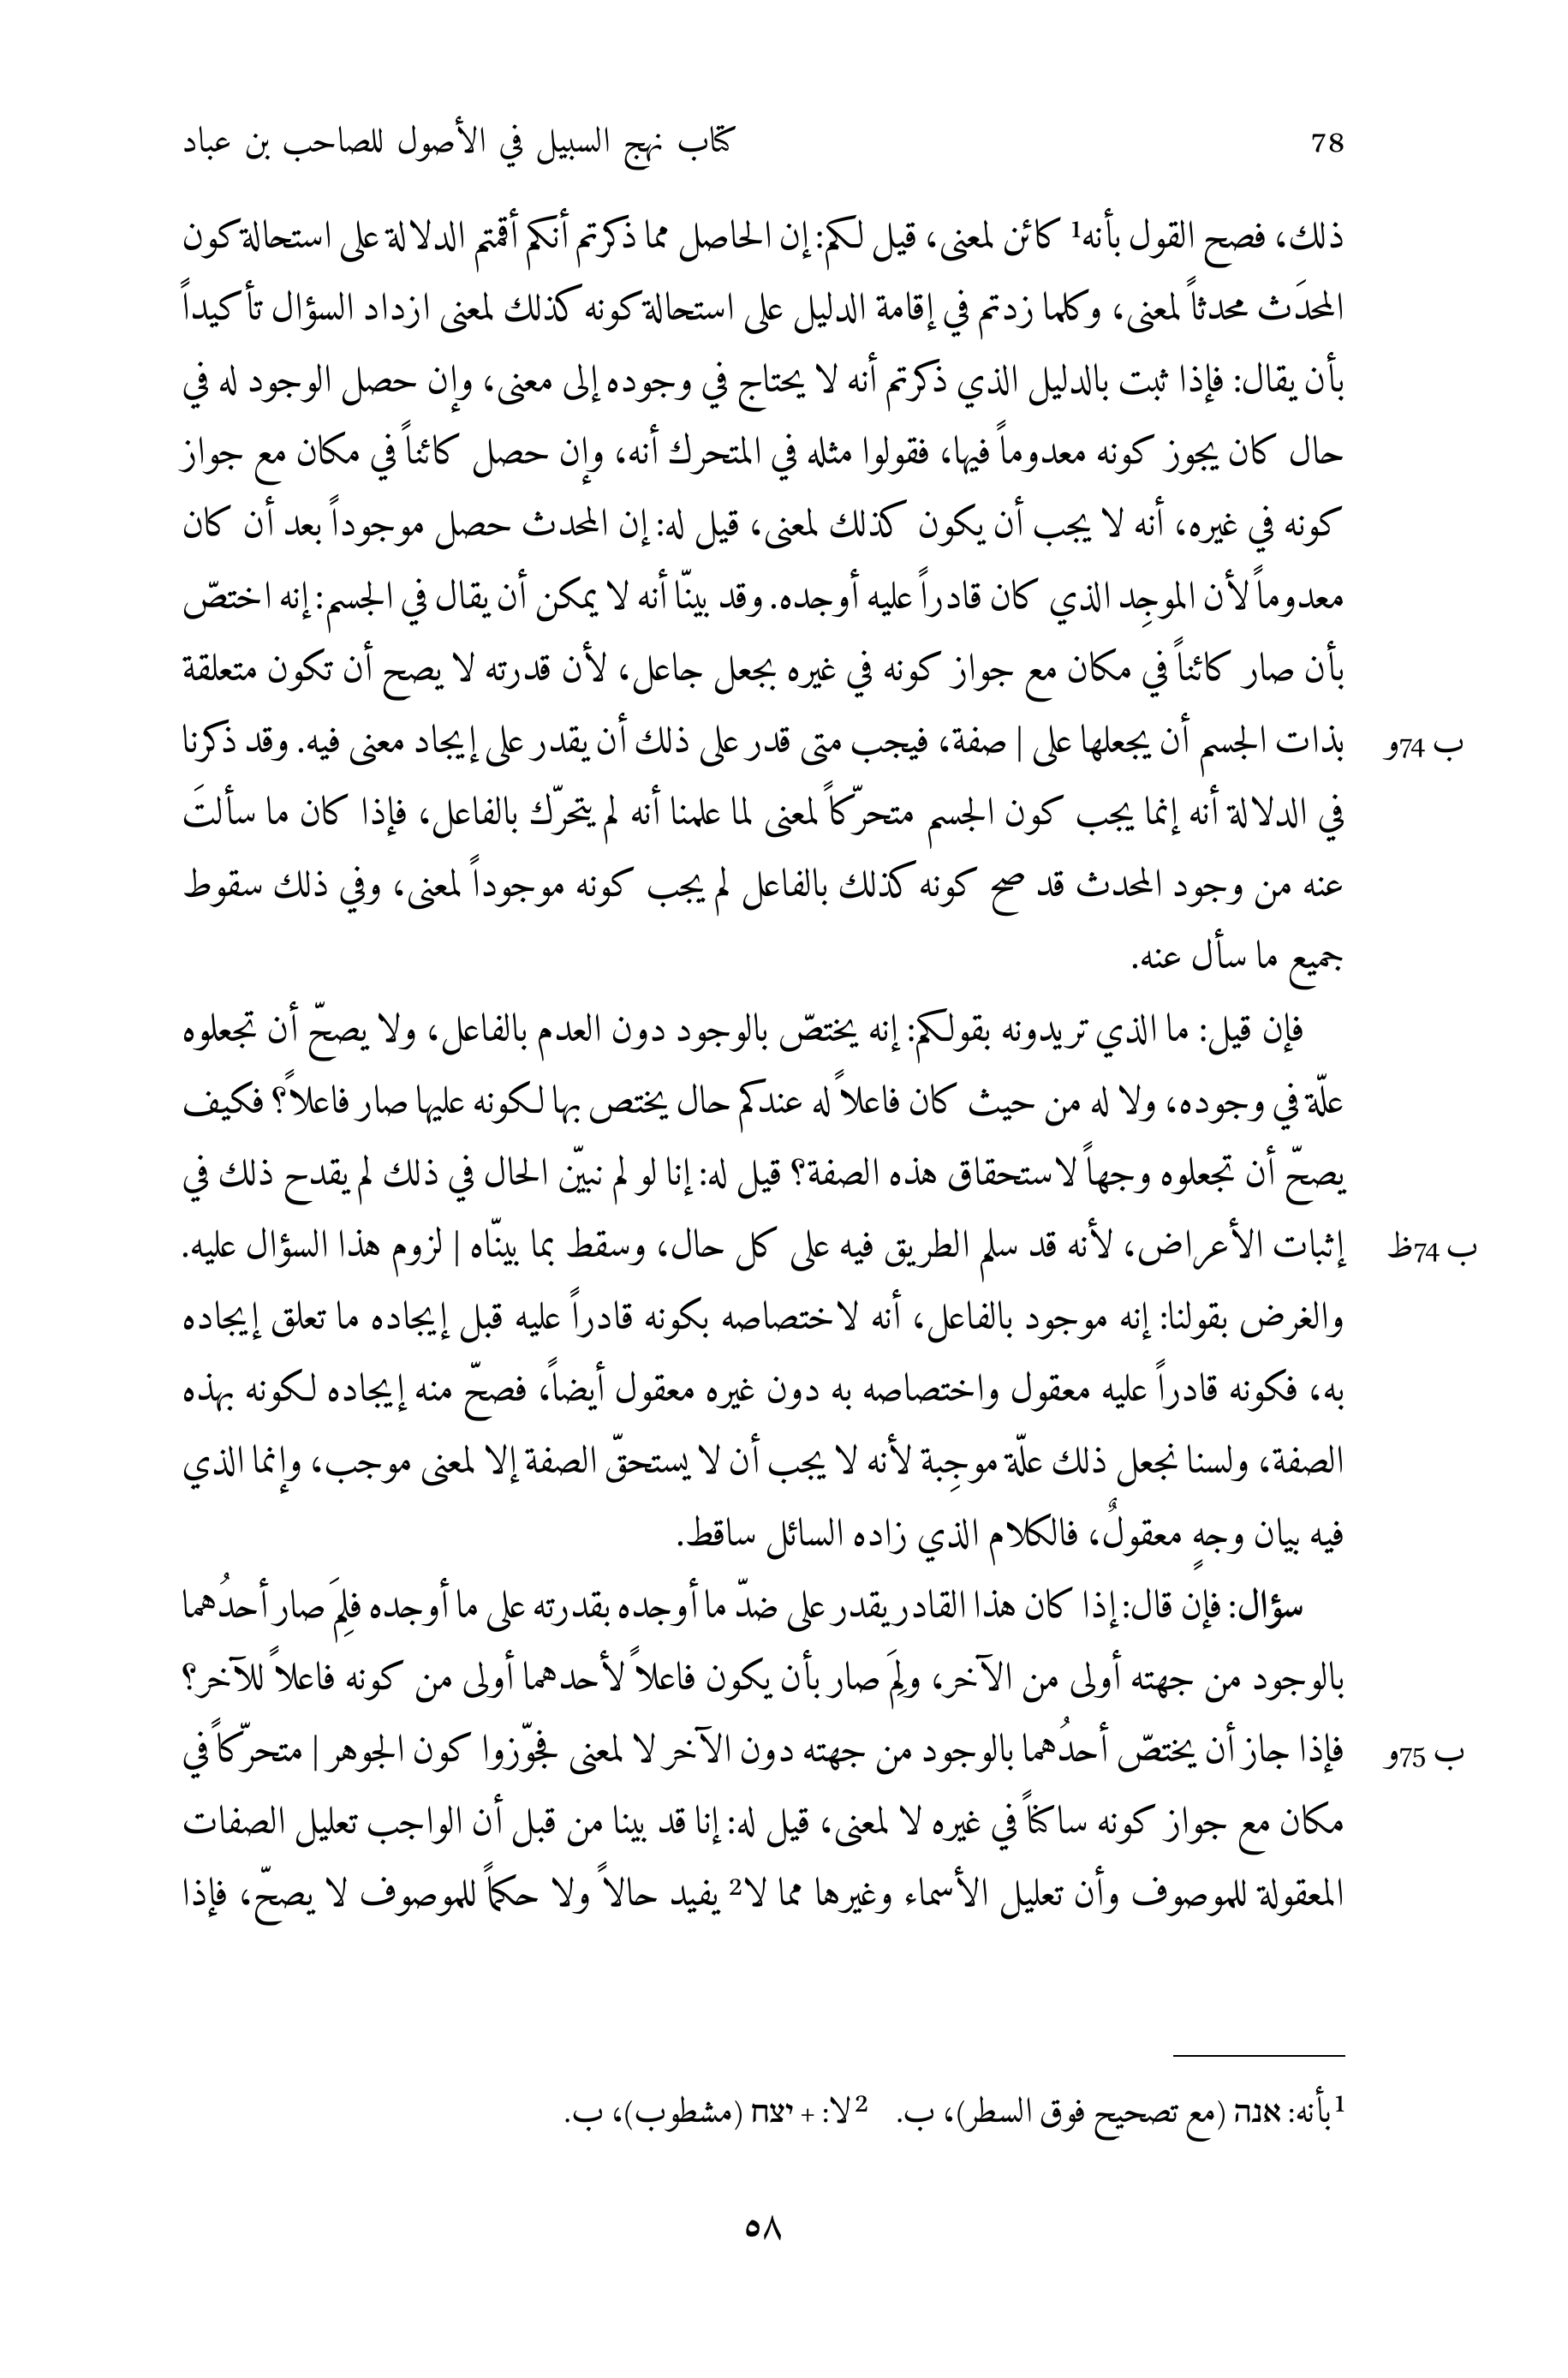 78 كتاب نهج السبيل في الأصول للصاحب بن عباد
ذلك، فصح القول بأنه1 كائن لمعنى، قيل لكم: إن الحاصل مما ذكرتم أنكم أقمتم الدلالة على استحالة كون
المحدَث محدثاً لمعنى، وكلما زدتم في إقامة الدليل على استحالة كونه كذلك لمعنى ازداد السؤال تأكيداً
بأن يقال: فإذا ثبت بالدليل الذي ذكرتم أنه لا يحتاج في وجوده إلى معنى، وإن حصل الوجود له في
حال كان يجوز كونه معدوماً فيها، فقولوا مثله في المتحرك أنه، وإن حصل كائناً في مكان مع جواز
كونه في غيره، أنه لا يجب أن يكون كذلك لمعنى، قيل له: إن المحدث حصل موجوداً بعد أن كان
معدوماً لأن الموجِد الذي كان قادراً عليه أوجده. وقد بينّا أنه لا يمكن أن يقال في الجسم: إنه اختصّ
بأن صار كائناً في مكان مع جواز كونه في غيره بجعل جاعل، لأن قدرته لا يصح أن تكون متعلقة
ب 74و بذات الجسم أن يجعلها على | صفة، فيجب متى قدر على ذلك أن يقدر على إيجاد معنى فيه. وقد ذكرنا
في الدلالة أنه إنما يجب كون الجسم متحرّكاً لمعنى لما علمنا أنه لم يتحرّك بالفاعل، فإذا كان ما سألتَ
عنه من وجود المحدث قد صح كونه كذلك بالفاعل لم يجب كونه موجوداً لمعنى، وفي ذلك سقوط
جميع ما سأل عنه.
فإن قيل: ما الذي تريدونه بقولكم: إنه يختصّ بالوجود دون العدم بالفاعل، ولا يصحّ أن تجعلوه
علّة في وجوده، ولا له من حيث كان فاعلاً له عندكم حال يختص بها لكونه عليها صار فاعلاً؟ فكيف
يصحّ أن تجعلوه وجهاً لاستحقاق هذه الصفة؟ قيل له: إنا لو لم نبيّن الحال في ذلك لم يقدح ذلك في
ب 74ظ إثبات الأعراض، لأنه قد سلم الطريق فيه على كل حال، وسقط بما بينّاه | لزوم هذا السؤال عليه.
والغرض بقولنا: إنه موجود بالفاعل، أنه لاختصاصه بكونه قادراً عليه قبل إيجاده ما تعلق إيجاده
به، فكونه قادراً عليه معقول واختصاصه به دون غيره معقول أيضاً، فصحّ منه إيجاده لكونه بهذه
الصفة، ولسنا نجعل ذلك علّة موجِبة لأنه لا يجب أن لا يستحقّ الصفة إلا لمعنى موجب، وإنما الذي
فيه بيان وجهٍ معقولٌ، فالكلام الذي زاده السائل ساقط.
سؤال: فإن قال: إذا كان هذا القادر يقدر على ضدّ ما أوجده بقدرته على ما أوجده فلِمَ صار أحدُهما
بالوجود من جهته أولى من الآخر، ولِمَ صار بأن يكون فاعلاً لأحدهما أولى من كونه فاعلاً للآخر؟
ب 75و فإذا جاز أن يختصّ أحدُهما بالوجود من جهته دون الآخر لا لمعنى فجوّزوا كون الجوهر | متحرّكاً في
مكان مع جواز كونه ساكناً في غيره لا لمعنى، قيل له: إنا قد بينا من قبل أن الواجب تعليل الصفات
المعقولة للموصوف وأن تعليل الأسماء وغيرها مما لا2 يفيد حالاً ولا حكماً للموصوف لا يصحّ، فإذا
1 بأنه: אנה (مع تصحيح فوق السطر)، ب. 2 لا: + יצח (مشطوب)، ب.
٥٨